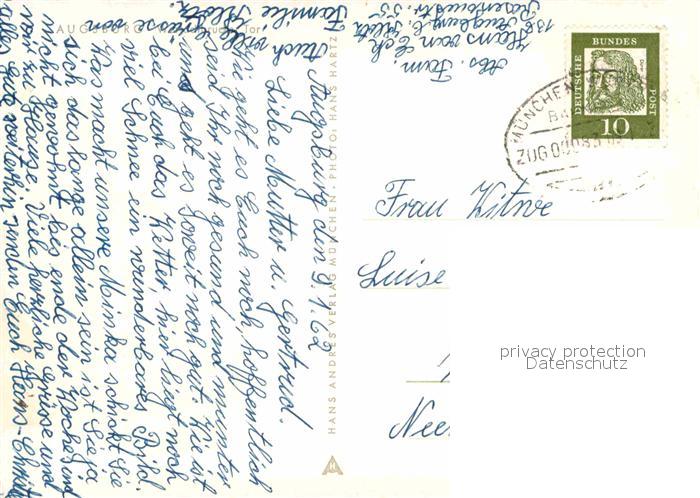 AUGSBURG
Tor
HANS ANDRES VERLAG MÜNCHEN · PHOTO: HANS HARTZ
Augsburg den 9.1.62
Liebe Mutter u. Gertrud.
Wie geht es Euch noch, hoffentlich
seid Ihr noch gesund und munter
uns geht es soweit noch gut. Wie ist
bei Euch das Wetter, hier liegt noch
viel Schnee ein wunderbares Bild.
Was macht unsere Minka schickt Sie
sich das lange allein sein ist Sie ja
nicht gewohnt bis ende der Woche sind
wir zu Hause. Viele herzliche Grüsse und
alles gute weiterhin senden Euch Heins-Christ
Auch viele Grüsse von
Familie
Abs. Fam.
Hans van
Augsburg
DEUTSCHE BUNDESPOST
10
MÜNCHEN
BA
ZUG 00083
Frau Witwe
Luise
Nee
privacy protection
Datenschutz